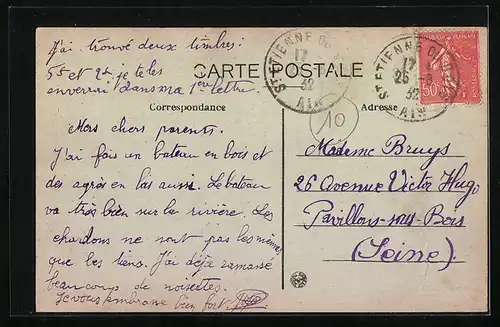 J'ai trouvé deux timbres:
5f et 2f je te les
enverrai dans ma 1ère lettre
CARTE POSTALE
Correspondance
Mes chers parents.
J'ai fais un bateau en bois et
des agrès en las aussi. Le bateau
va très bien sur la rivière. Les
chardons ne sont pas les mêmes
que les tiens. J'ai déjà ramassé
beaucoup de noisettes.
Je vous embrasse bien fort
Adresse
Madame Bruys
26 Avenue Victor Hugo
Pavillons-sous-Bois
(Seine).
10
ST ETIENNE DU
17
32
AIN
ST ETIENNE DU
17
25-8
32
AIN
50c